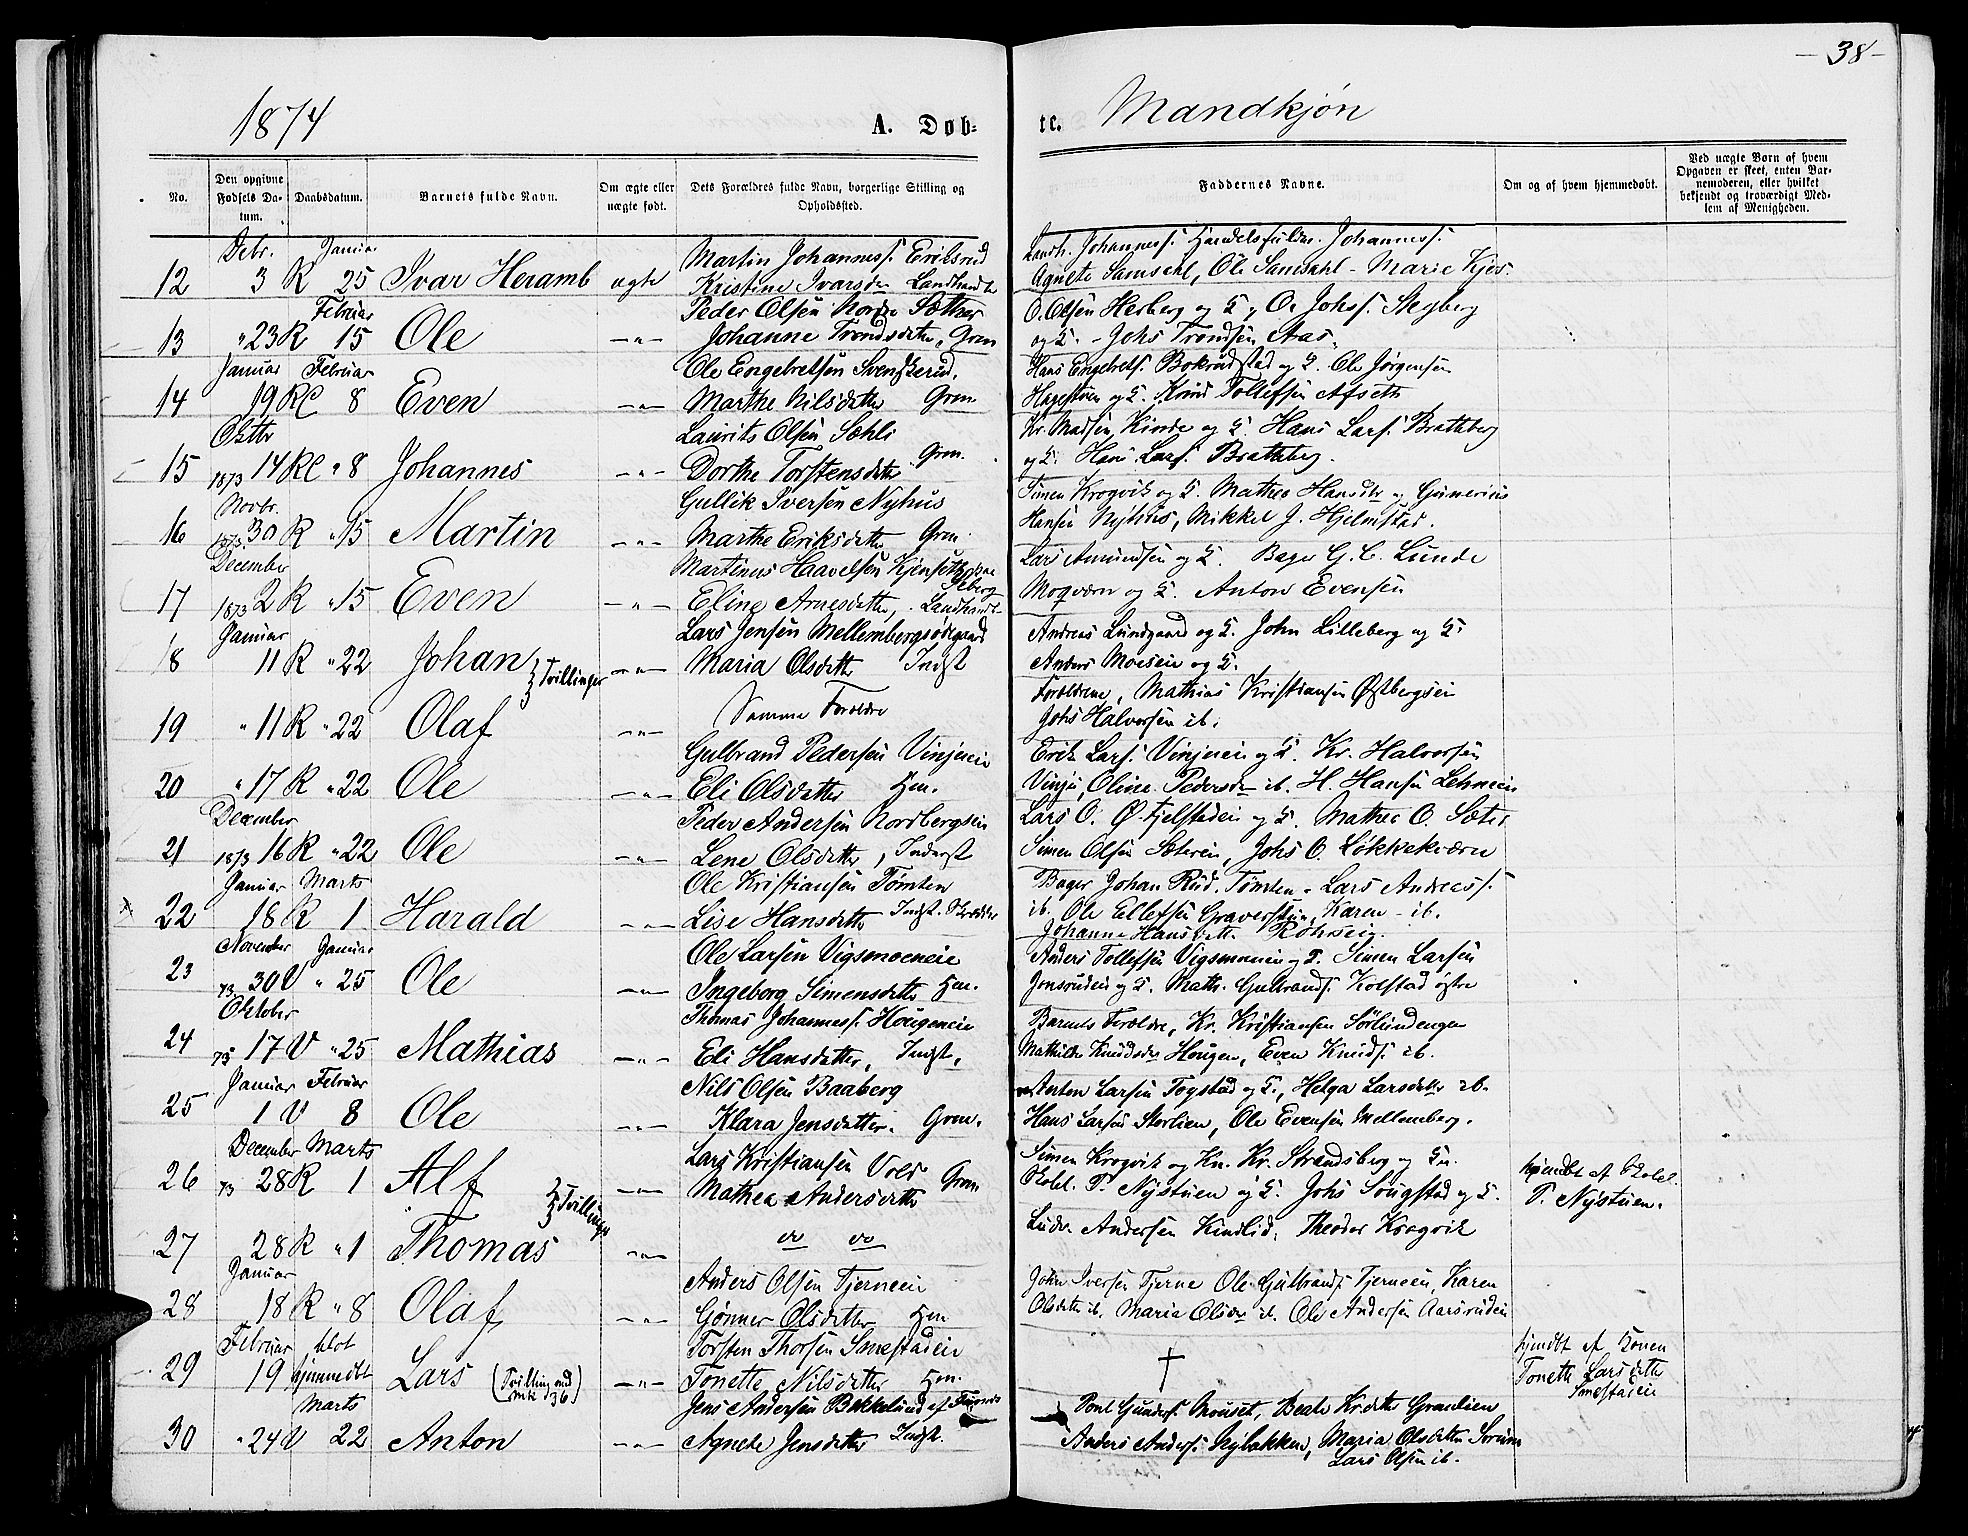 1874
A. Døb-
te.
Mandkjøn
— 38 —
No.
Den opgivne Fødsels Datum.
Daabsdatum.
Barnets fulde Navn.
Om ægte eller nægte født.
Dets Forældres fulde Navn, borgerlige Stilling og Opholdssted.
Faddernes Navne.
Om og af hvem hjemmedøbt.
Ved nægte Børn af hvem Opgaven er skeet, enten Barnemoderen, eller hvilket bekjendt og troværdigt Medlem af Menigheden.
Debr. Januar
12 3 R 25 Ivar Heramb ægte
Martin Johanness. Eriksrud
Kristine Ivarsdr. Landhandler
Johanness. Johanness.
Agnete Samdahl, Ole Samdahl - Marie Kjos.
Februar
13 " 23 R 15 Ole —"—
Peder Olsen Nordre Sæther
Johanne Trondsdatter, Grm
O. Olsen Herberg og K, O. Johs. Stegberg
og K. - Johs Trondsen Aas.
Januar Februar
14 19 R 8 Even —"—
Ole Engebretsen Svenskerud,
Marthe Nilsdatter Grm
Hans Engebrets. Bokrudstad og K. Ole Jørgensen
Hagestuen og K. Knud Tollefsen Afseth
Oktbr
15 1873 14 R " 8 Johannes —"—
Laurits Olsen Sæhli
Dorthe Torstensdatter Grm.
Kr. Madsen Kinde og K. Hans Lars. Bratberg
og K. Hans Lars. Bratberg.
Novbr.
16 1873 30 R " 15 Martin —"—
Gullik Iversen Nyhus
Marthe Eriksdatter Grm.
Simen Krogvik og K. Mathea Hansdtr og Gunerius
Hansen Nyhus, Mikkel J. Hjelmstad.
December
17 1873 2 R " 15 Even —"—
Martinus Haavelsen
Eline Arnesdatter, Landhandl.
Lars Amundsen og K. Bager G. C. Lunde
og K. Anton Evensen
Januar
18 11 R " 22 Johan } Tvillinger —"—
Lars Jensen Mellembergsødegaard
Maria Olsdatter Indst
Andreas Lundgaard og K. John Lilleberg og K.
Anders Moeseie og K.
19 " 11 R " 22 Olaf —"—
Samme Forældre
Forældrene, Mathias Kristiansen Østbergseie
Johs Halvorsen ib.
20 " 17 R " 22 Ole —"—
Gulbrand Pedersen Vinjueie
Eli Olsdatter Hm.
Erik Lars. Vinjueie og K. Kr. Halvorsen
Vinju, Oline Pedersdr ib. H. Hansen Lehneeie
December
21 1873 16 R " 22 Ole —"—
Peder Andersen Nordbergseie
Lene Olsdatter, Inderst
Lars O. Ø. Fjelstadeie og K. Mathea O. Sæter
Simen Olsen Sætereie, Johs O. Løkkekværn
Januar Marts
22 18 R 1 Harald —"—
Ole Kristiansen Tømten
Lise Hansdatter Indst. Skrædder
Bager Johan Rud. Tømten - Lars Andreass.
ib. Ole Ellefsen Graverstuen, Karen - ib.
Johanne Hansdatter
November Januar
23 73 30 V " 25 Ole —"—
Ole Larsen Vigsmoeneie
Ingeborg Simensdatter Hm.
Anders Tollefsen Vigsmoeneie og K. Simen Larsen
Jonsrudeie og K. Math. Gulbrands. Kolstad østre
Oktober
24 73 17 V " 25 Mathias —"—
Thomas Johanness. Hougeneie
Eli Hansdatter, Indst.
Barnets Forældre, Kr. Kristiansen Sørlundengen
Mathilde Knudsdr Hougen, Even Knuds. ib.
Januar Februar
25 1 V 8 Ole —"—
Nils Olsen Baaberg
Klara Jensdatter. Grm.
Anton Larsen Togstad og K., Helga Larsdatter ib.
Hans Larsen Storlien, Ole Evensen Mellemberg.
December Marts
26 73 28 R 1 Alf } Tvillinger —"—
Lars Kristiansen Vold Grm
Mathea Andersdatter
Simen Krogvik og Kn. Kr. Strandsberg og Kn.
Skolel. P. Nystuen og K. Johs Sougstad og K.
hjemdbt af Skolel.
P. Nystuen.
27 28 R " 1 Thomas —"—
do do
Andersen Kindlid, Theodor Krogvik
Januar
28 18 R " 8 Olaf —"—
Anders Olsen Tjerneeie
Gønner Olsdatter Hm
John Iversen Tjerne Ole Gulbrands. Tjerneeie, Karen
Olsdatter ib. Maria Olsdr ib. Ole Andersen Aarsrudeie
Februar blot
29 19 hjemmedbt Lars (Tvilling med mk 36) —"—
Torsten Thorsen Smestadeie
Tonette Nilsdatter Hm.
†
hjemdbt af Konen
Tonette Larsdatter
Smestadeie
Marts
30 " 24 V 22 Anton —"—
Jens Andersen Bakkelund af Furnes
Agnete Jensdatter Indst.
Gunders. Mouset, Beate Kr.datter Granlien
Anders Anders. Nybakken, Maria Olsdatter Sorum
Lars Olsen ib.